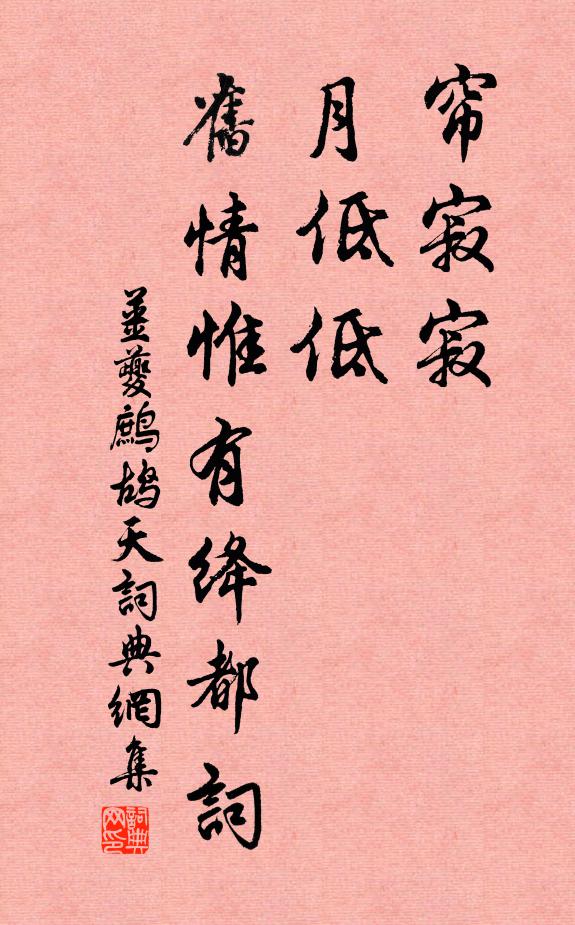 帘寂寂
月低低
舊情惟有绛都詞
姜夔鷓鴣天詞典網集
詞典网印